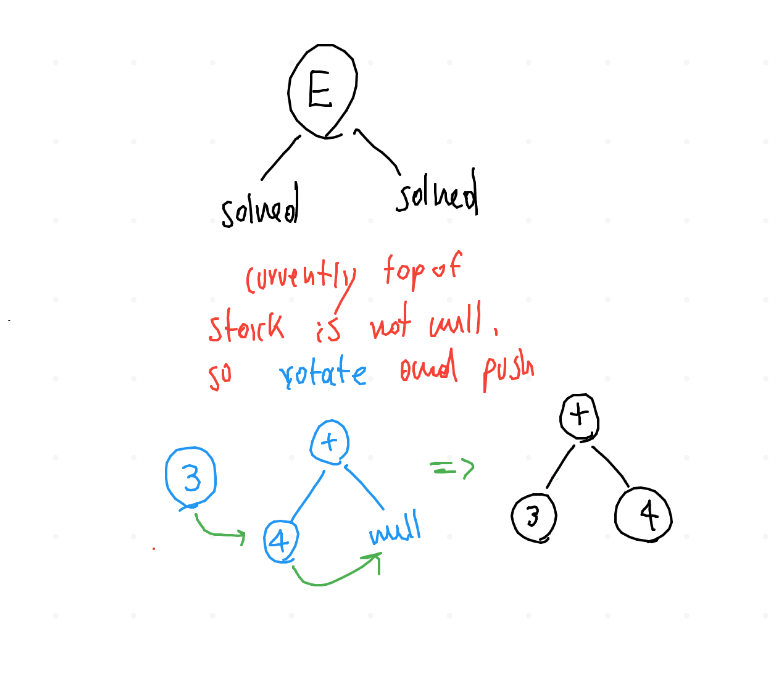 E
solved
solved
currently top of
stack is not null.
so rotate and push
3
+
4
null
=>
+
3
4